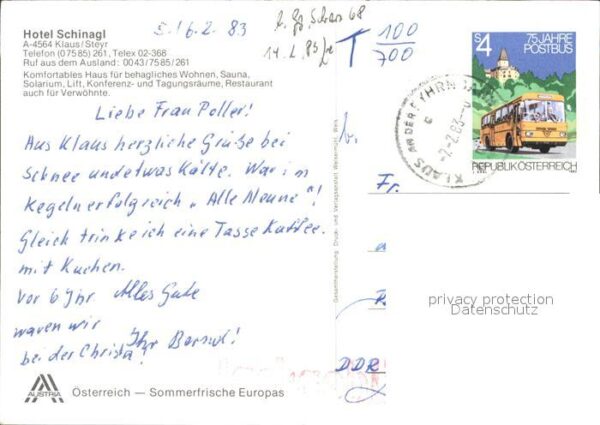 Hotel Schinagl
A-4564 Klaus/Steyr
Telefon (07585) 261, Telex 02-368
Ruf aus dem Ausland: 0043/7585/261
Komfortables Haus für behagliches Wohnen, Sauna,
Solarium, Lift, Konferenz- und Tagungsräume, Restaurant
auch für Verwöhnte.
16.2.83
T 100
700
Liebe Frau Poller!
Aus Klaus herzliche Grüße bei
Schnee und etwas Kälte. War im
Kegeln erfolgreich "Alle Neune"!
Gleich trinke ich eine Tasse Kaffee
mit Kuchen.
Vor 6 Jhr Alles Gute
waren wir Ihr
bei der Christa!
AUSTRIA
Österreich — Sommerfrische Europas
S4
75 JAHRE
POSTBUS
REPUBLIK ÖSTERREICH
KLAUS AN DER PYHRNBAHN
-7.-2.83
Fr.
DDR
privacy protection
Datenschutz